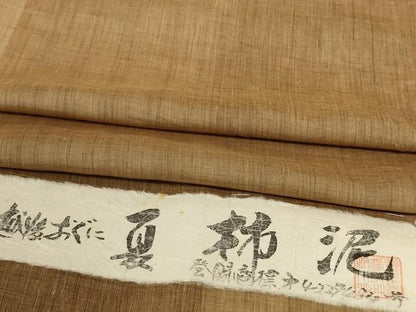 越後おぐに 夏 柿 泥
登録商標